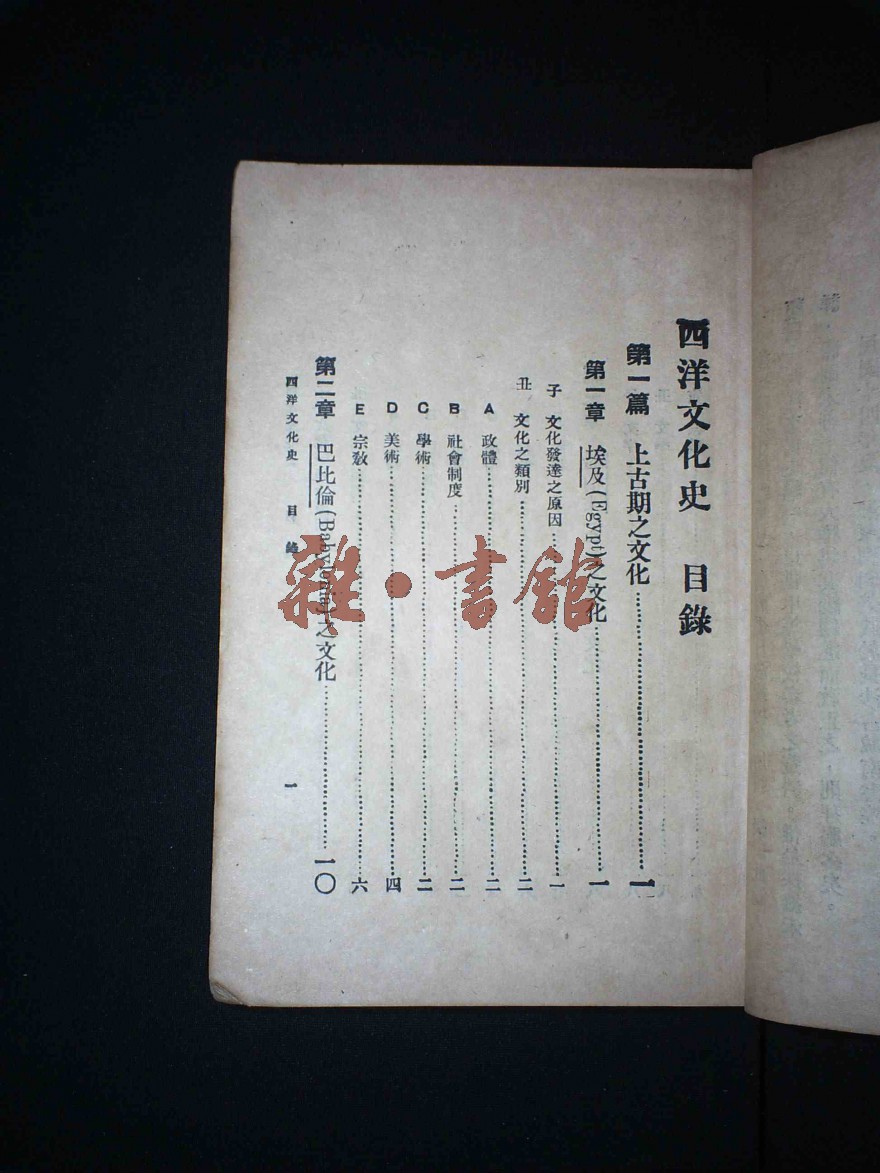 西洋文化史 目錄
第一篇 上古期之文化……一
第一章 埃及(Egypt)之文化……一
子 文化發達之原因……一
丑 文化之類別……二
A 政體……二
B 社會制度……二
C 學術……二
D 美術……四
E 宗教……六
第二章 巴比倫(Babylonia)之文化……一〇
西洋文化史 目錄 一
雜·書館